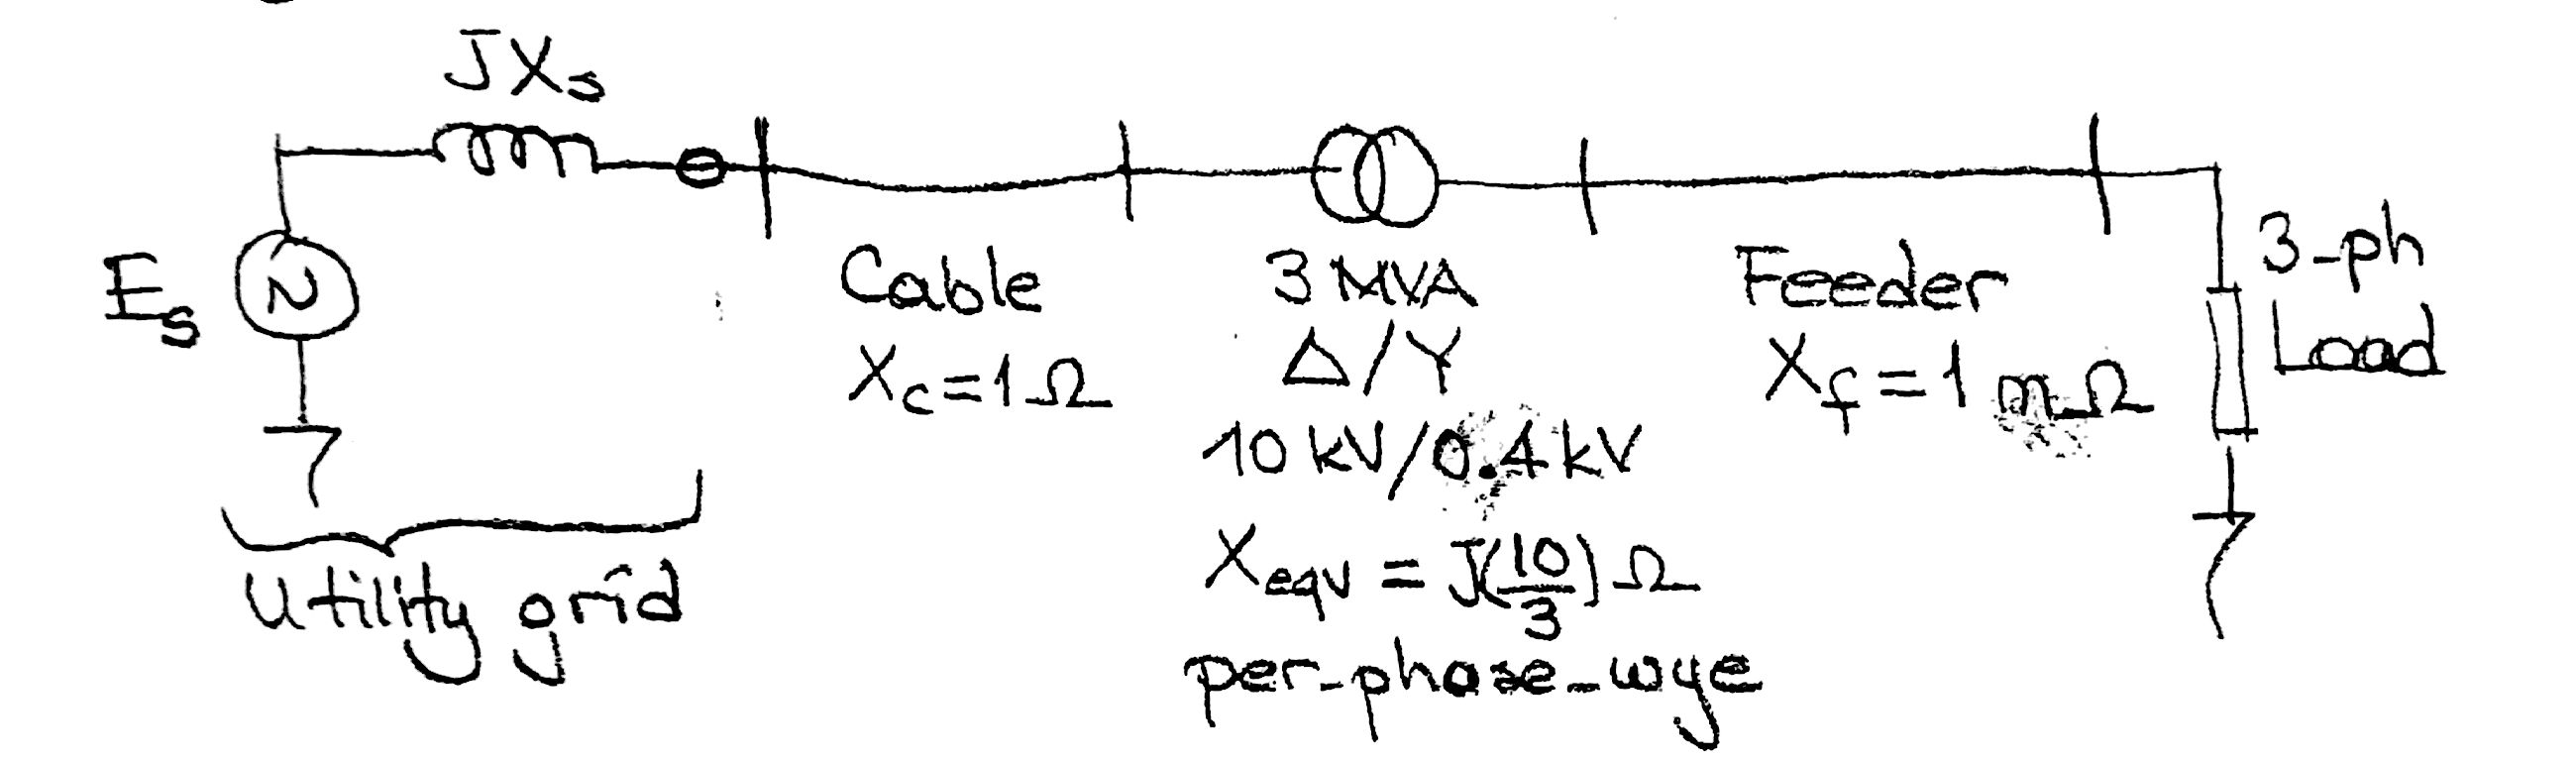 JXs
Es
N
Utility grid
Cable
Xc=1Ω
3 MVA
Δ/Y
10 kV/0.4 kV
Xeqv = J(10/3)Ω
per-phase-wye
Feeder
Xf=1 mΩ
3-ph
Load